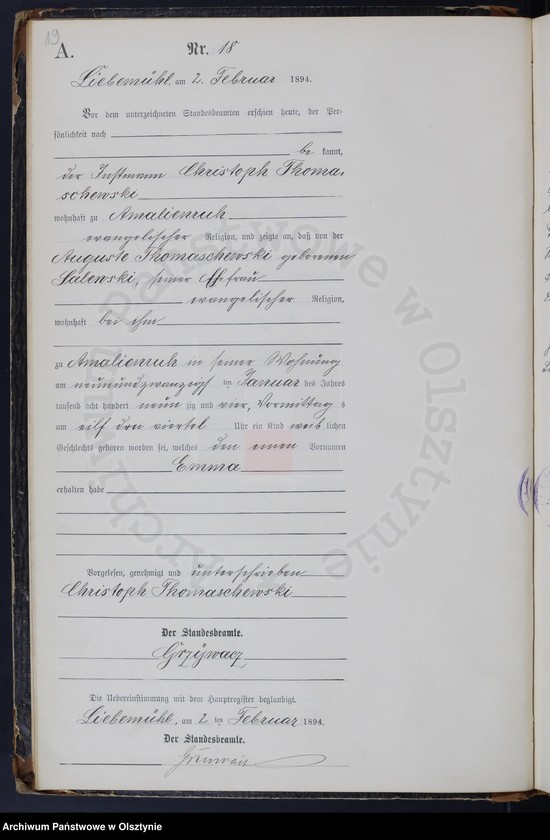 19
A.
Nr. 18
Liebemühl, am 2. Februar 1894.
Vor dem unterzeichneten Standesbeamten erschien heute, der Per-
sönlichkeit nach
be kannt,
der Instmann Christoph Thoma-
schewski
wohnhaft zu Amalienruh
evangelischer Religion, und zeigte an, daß von der
Auguste Thomaschewski geborenen
Salewski, seiner Ehefrau
evangelischer Religion,
wohnhaft bei ihm
zu Amalienruh in seiner Wohnung
am neunundzwanzigsten Januar des Jahres
tausend acht hundert neun zig und vier, Vormittag s
um eilf drei viertel Uhr ein Kind weib lichen
Geschlechts geboren worden sei, welches den einen Vornamen
Emma
erhalten habe
Vorgelesen, genehmigt und unterschrieben
Christoph Thomaschewski
Der Standesbeamte.
Grzywacz
Die Uebereinstimmung mit dem Hauptregister beglaubigt.
Liebemühl, am 2 ten Februar 1894.
Der Standesbeamte.
Archiwum Państwowe w Olsztynie
Archiwum Państwowe w Olsztynie